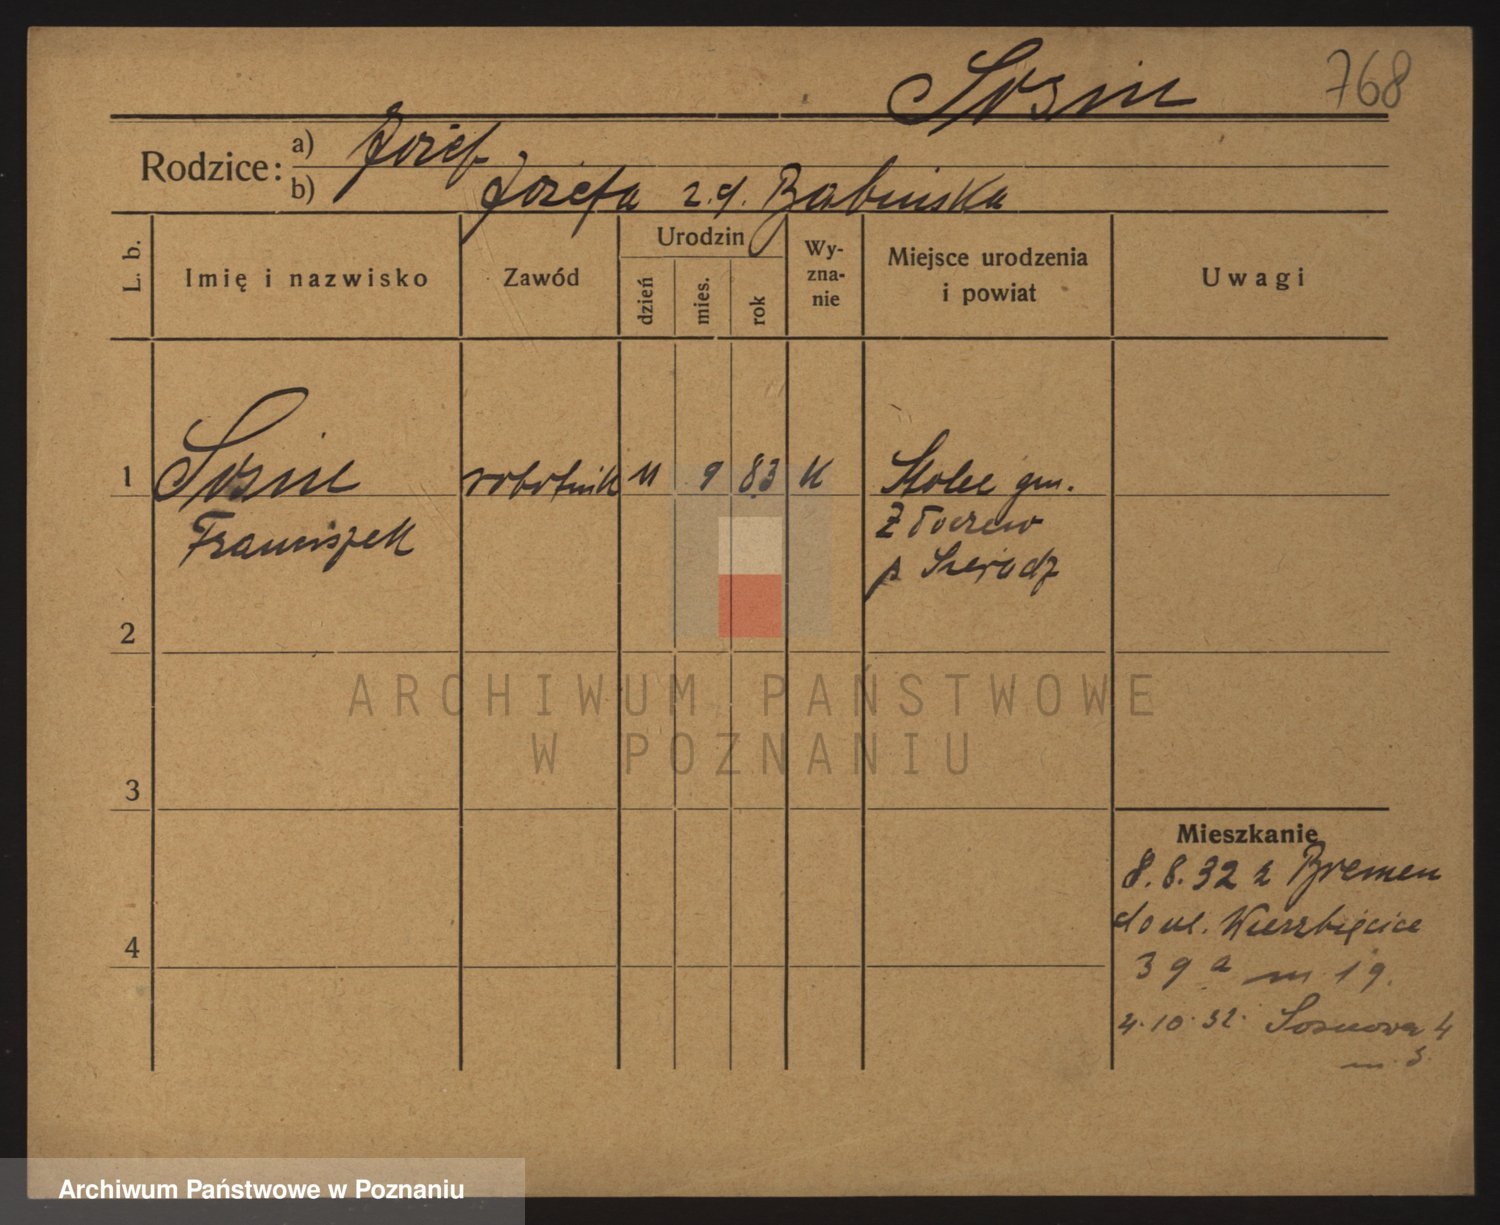 Sosin
768
Rodzice:
a) Józef
b) Józefa z.d. Babińska
L. b.
Imię i nazwisko
Zawód
Urodzin
dzień
mies.
rok
Wy-
zna-
nie
Miejsce urodzenia
i powiat
Uwagi
1
robotnik 11 9 83 K Stolec gm.
Franciszek
Złoczew
p Sieradz
2
ARCHIWUM PAŃSTWOWE
W POZNANIU
3
Mieszkanie
8.8.32 z Bremen
do ul. Wierzbięcice
39a m 19.
4
4.10.32. Sosnowa 4
m. 3.
Archiwum Państwowe w Poznaniu